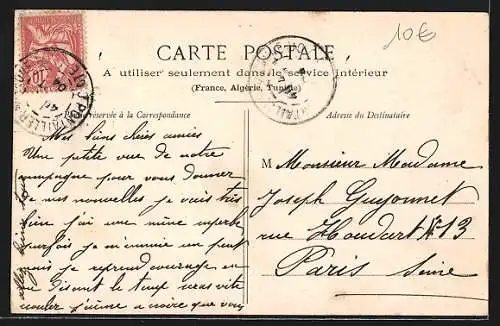 10€
CARTE POSTALE
A utiliser seulement dans le service intérieur
(France, Algérie, Tunisie)
réservée à la Correspondance
Adresse du Destinataire
Mes biens chers amies
Une petite vue de notre
campagne pour vous donner
de nos nouvelles je vais très
bien j'ai une mine
parfois je m'ennuie un peut
mais je reprend courage en
disant le temp sera vite
couler j'aime a croire que vous
M Monsieur Madame
Joseph Guyonnet
rue Houdart N° 13
Paris Seine